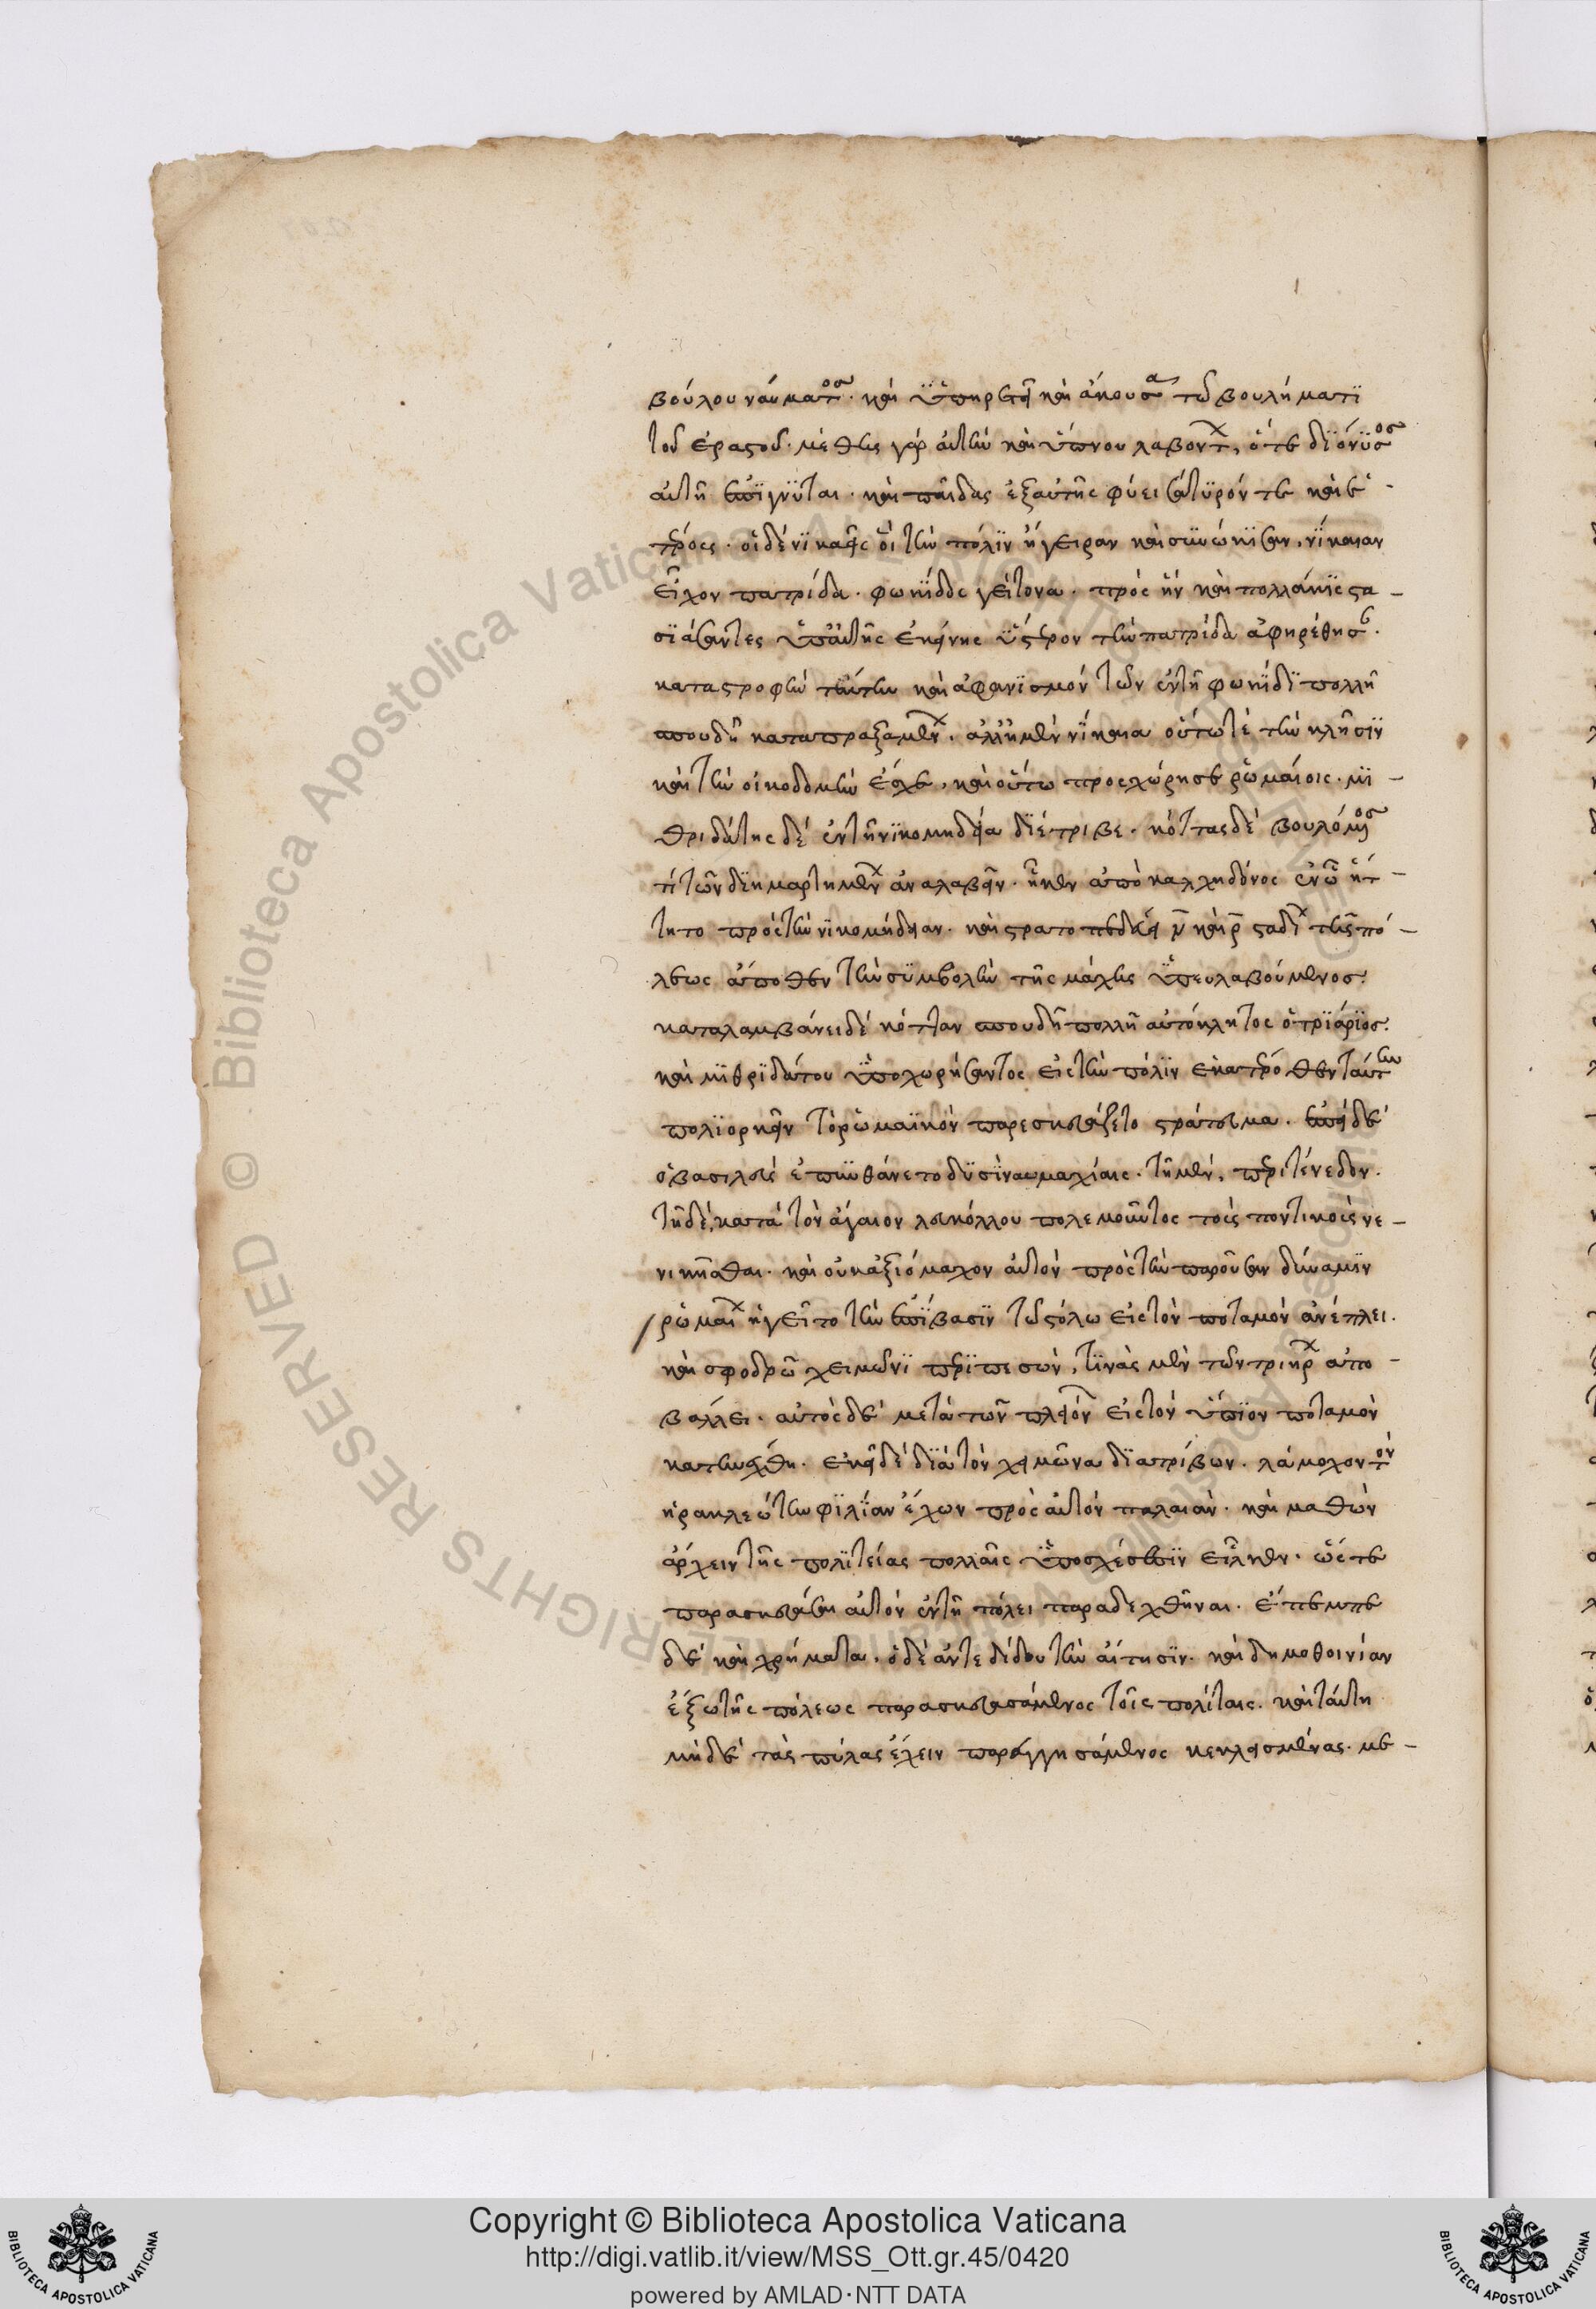 βούλου νάματος. καὶ ὑπηρετεῖ καὶ ἄκουσα τῶ βουλήματι
τοῦ ἐραστοῦ. μέθης γὰρ αὐτὴν καὶ ὕπνου λαβόντων, ὅτε διόνυσος
αὐτῆ ἐπιγνῦται. καὶ παῖδας ἐξαὐτῆς φύει σάτυρόν τε καὶ ἑ
τέρους. οἱ δὲ νικαεῖς οἳ τὴν πόλιν ἤγειραν καὶ συνώκισαν, νίκαιαν
εἶχον πατρίδα. φωκίδος γείτονα. πρὸς ἣν καὶ πολλάκις στα-
σιάσαντες ὑπ' αὐτῆς ἐκείνης ὕστερον τὴν πατρίδα ἀφηρέθησαν.
καταστροφὴν ταύτην καὶ ἀφανισμὸν τῶν ἐν τῆ φωκίδι πολλῆ
σπουδῆ καταπραξαμένων. ἀλλ' ἡ μὲν νίκαια οὕτω τὲ τὴν κλῆσιν
καὶ τὴν οἰκοδομὴν ἔσχε, καὶ οὕτω προσεχώρησε ῥωμαίοις. μι-
θριδάτης δὲ ἐν τῆ νικομηδεία διέτριβε. κόττας δὲ βουλόμενος
τί τῶν διημαρτημένων ἀναλαβεῖν. ἧκεν ἀπὸ καλχηδόνος ἐν ὧ ἥτ-
τητο πρὸς τὴν νικομήδειαν. καὶ στρατοπεδεύει ν καὶ ρ σταδίων τῆς πό-
λεως ἄποθεν τὴν συμβολὴν τῆς μάχης ὑπευλαβούμενος.
καταλαμβάνει δὲ κότταν σπουδῆ πολλῆ αὐτόκλητος ὁ τριάριος.
καὶ μιθριδάτου ὑποχωρήσαντος εἰς τὴν πόλιν ἑκατέρόθεν ταύτην
πολιορκεῖν τὸ ῥωμαϊκὸν παρεσκευάζετο στράτευμα. ἐπεὶ δὲ
ὁ βασιλεὺς ἐπυνθάνετο δυσὶ ναυμαχίαις. τῆ μὲν, περὶ τένεδον.
τῆ δὲ, κατὰ τὸν αἰγαῖον λευκόλλου πολεμοῦντος τοὺς ποντικοὺς νε-
νικῆσθαι. καὶ οὐκ ἀξιόμαχον αὑτὸν πρὸς τὴν παροῦσαν δύναμιν
ῥωμαίων ἡγεῖτο τὴν ἐπίβασιν τῶ στόλω εἰς τὸν ποταμὸν ἀνέπλει.
καὶ σφοδρῶ χειμῶνι περιπεσὼν, τινὰς μὲν τῶν τριήρων ἀπο-
βάλλει. αὐτὸς δὲ μετὰ τῶν πλειόνων εἰς τὸν ὕπιον ποταμὸν
κατηνέχθη. ἐκεῖ δὲ διὰ τὸν χειμῶνα διατρίβων. λάμαχον τὸν
ἡρακλεώτην φιλίαν ἔχων πρὸς αὐτὸν παλαιὰν. καὶ μαθὼν
ἄρχειν τῆς πολιτείας πολλαῖς ὑποσχέσεσιν εἷλκεν. ὥστε
παρασκευάσαι αὐτὸν ἐν τῆ πόλει παραδεχθῆναι. ἔπεμπε
δὲ καὶ χρήματα. ὁ δὲ ἀντεδίδου τὴν αἴτησιν. καὶ δημοθοινίαν
ἔξω τῆς πόλεως παρασκευασάμενος τοῖς πολίταις. καὶ ταύτη
μὴ δὲ τὰς πύλας ἔχειν παραγγησάμενος κεκλεισμένας. με-
Copyright © Biblioteca Apostolica Vaticana
http://digi.vatlib.it/view/MSS_Ott.gr.45/0420
powered by AMLAD·NTT DATA